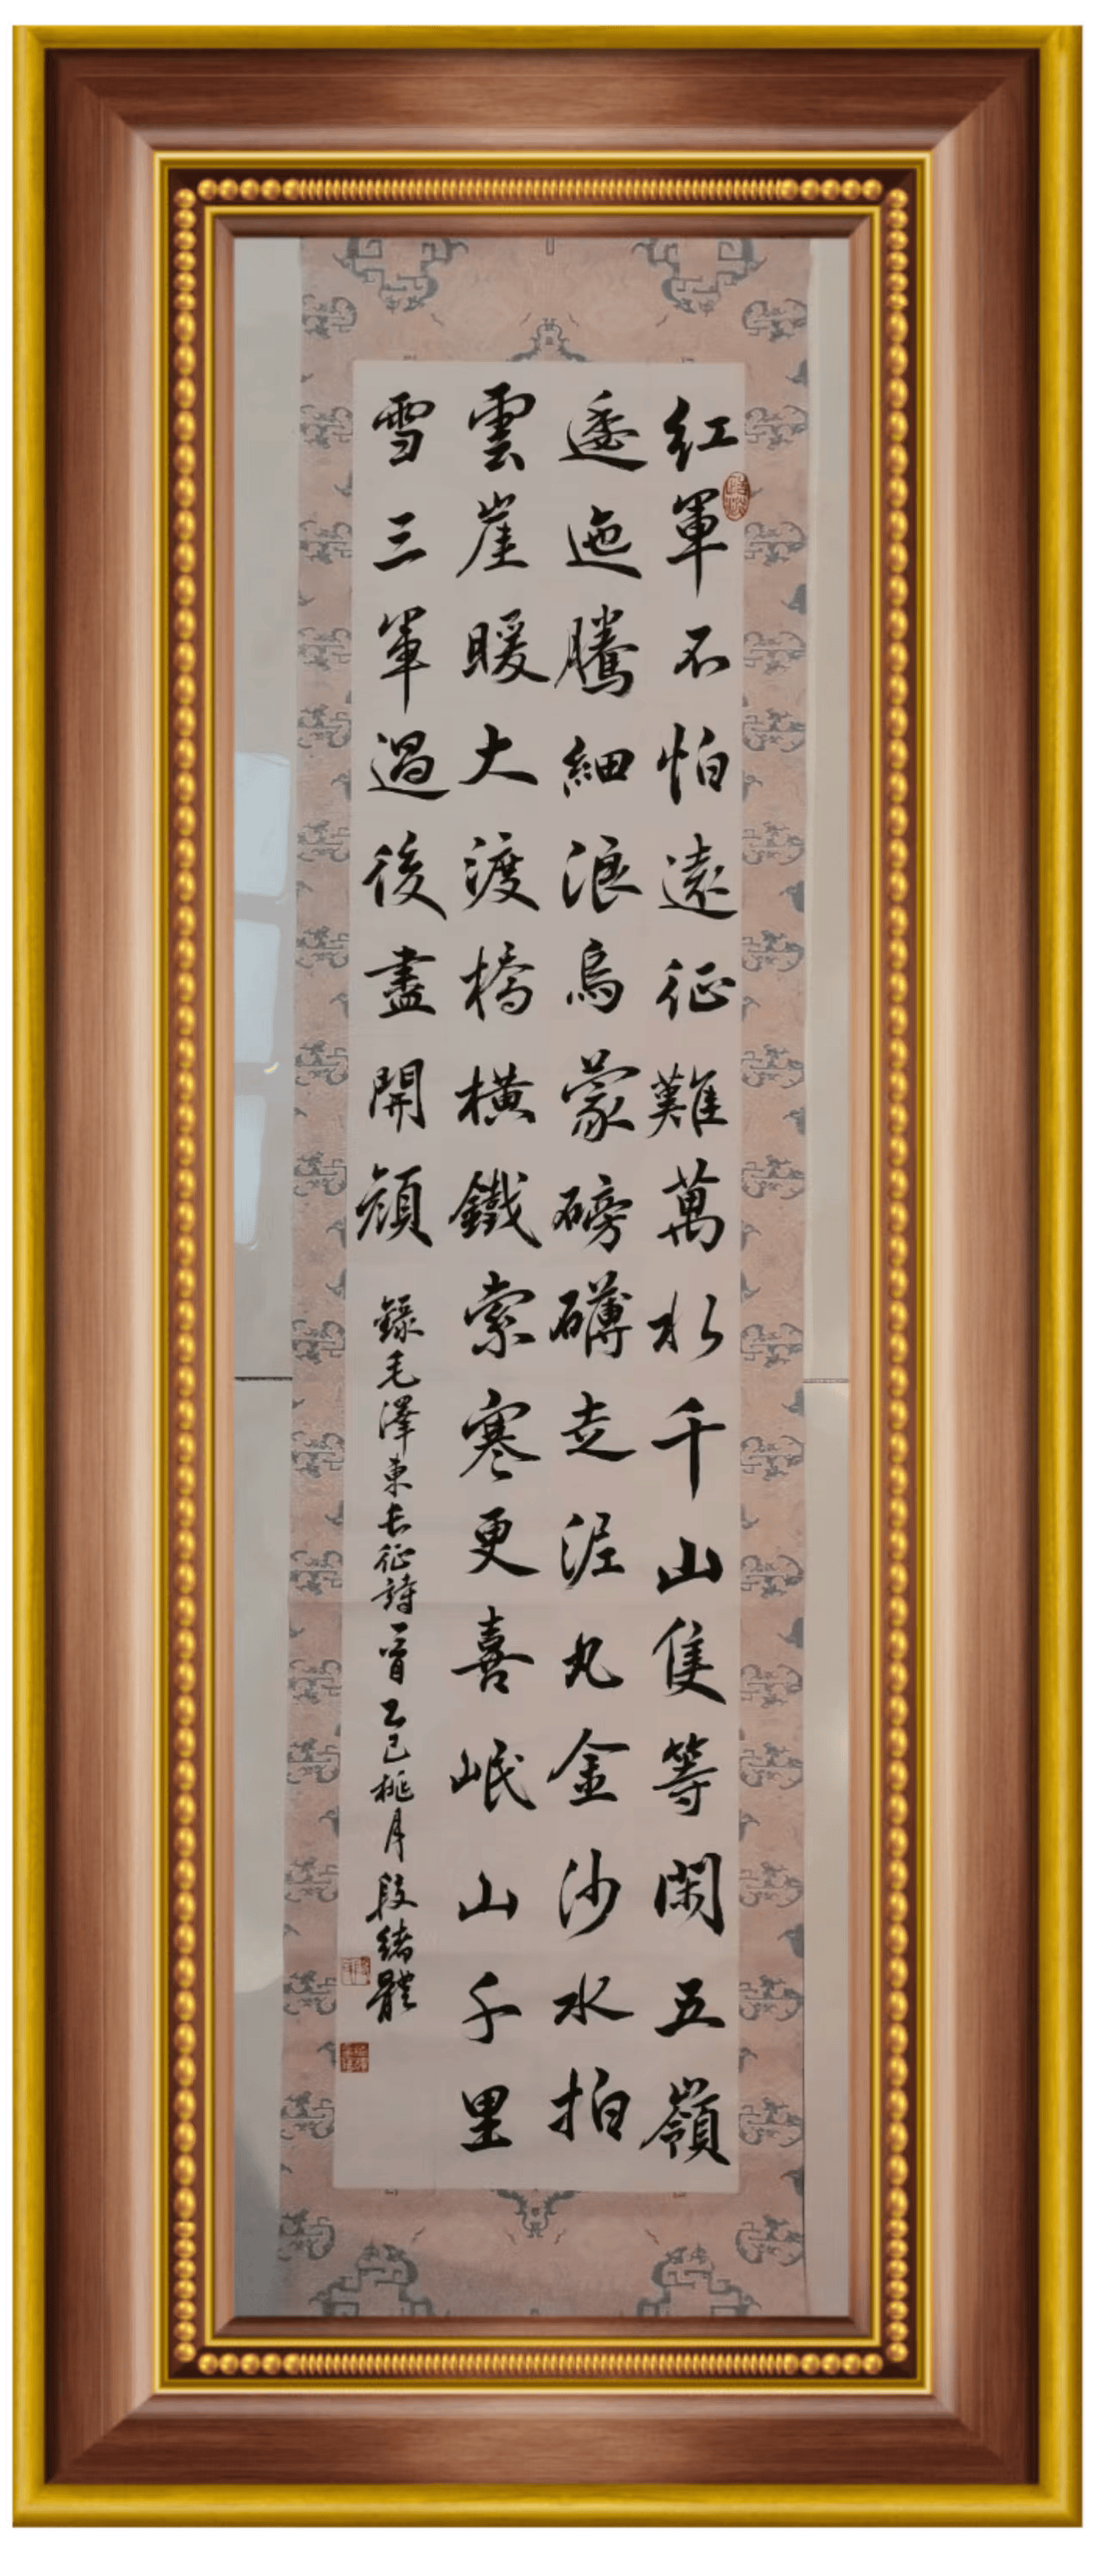 紅軍不怕遠征難萬水千山隻等閑五嶺
逶迤騰細浪烏蒙磅礴走泥丸金沙水拍
雲崖暖大渡橋橫鐵索寒更喜岷山千里
雪三軍過後盡開顏 錄毛澤東長征詩一首乙巳桃月段緒體